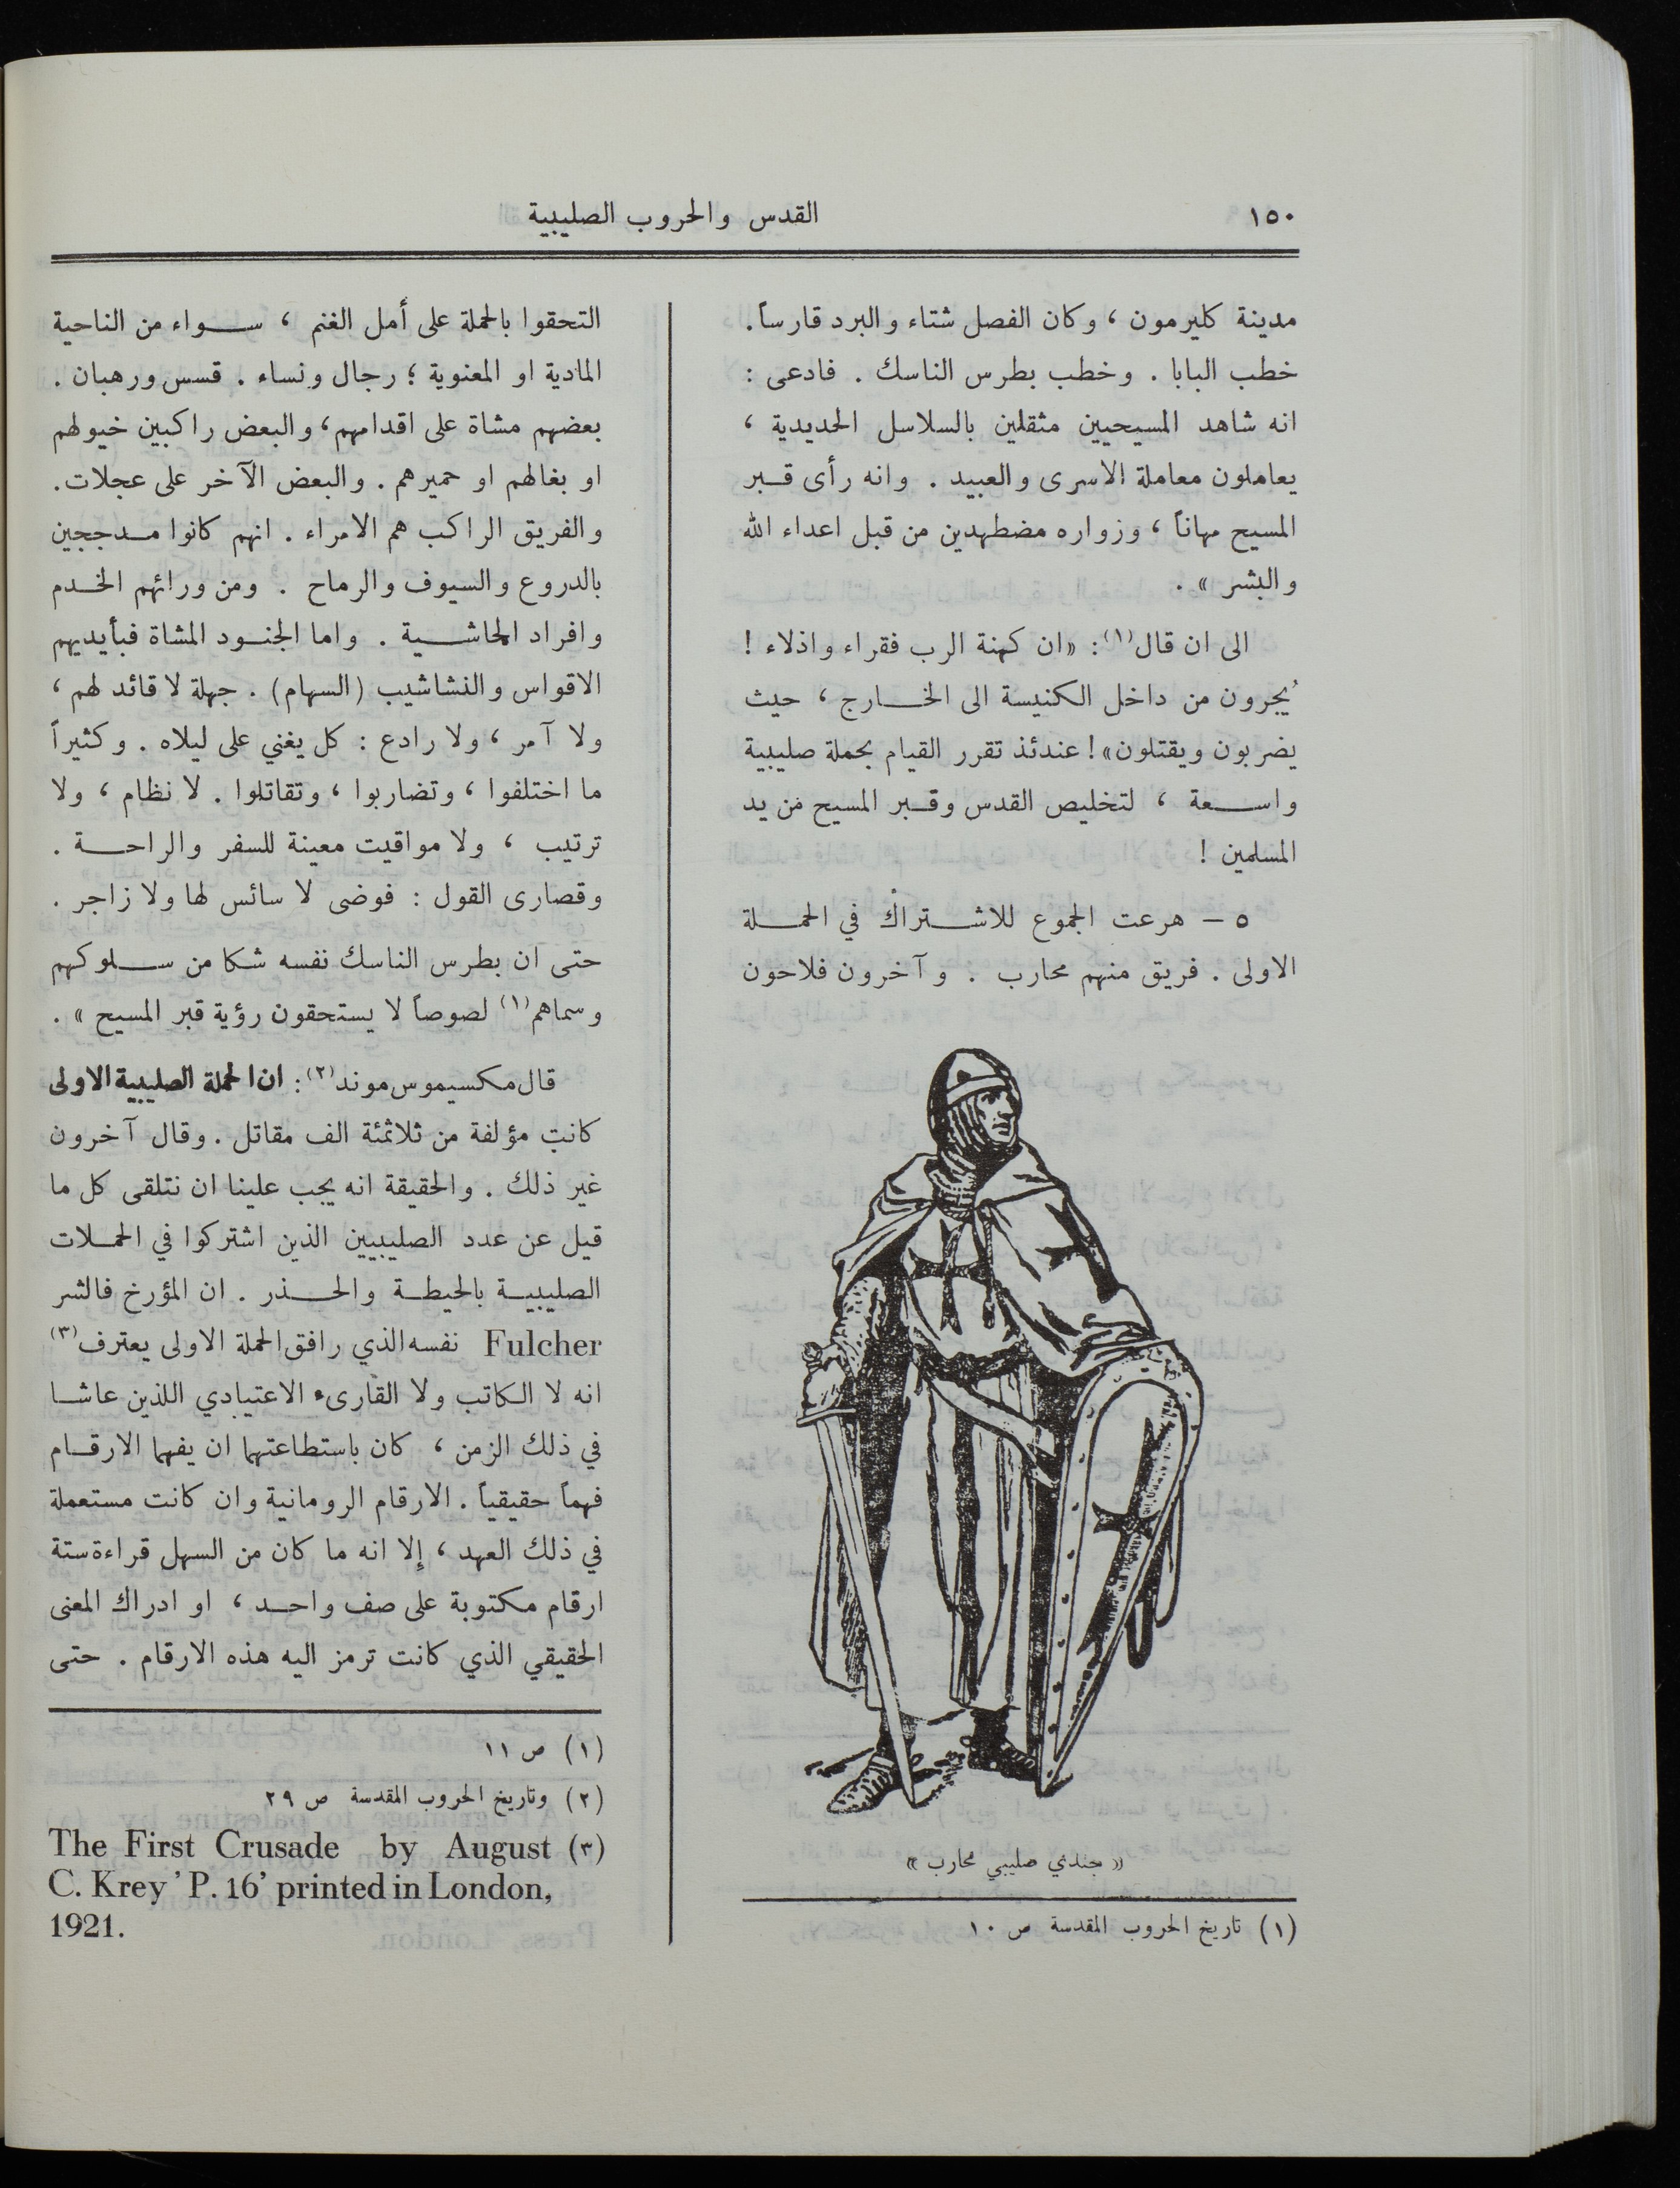 ١٥٠
القدس والحروب الصليبية
مدينة كليرمون ، وكان الفصل شتاء والبرد قارساً .
خطب البابا . وخطب بطرس الناسك . فادعى :
انه شاهد المسيحيين مثقلين بالسلاسل الحديدية ،
يعاملون معاملة الاسرى والعبيد . وانه رأى قبر
المسيح مهاناً ، وزواره مضطهدين من قبل اعداء الله
والبشر » .
الى ان قال(١) : « ان كهنة الرب فقراء واذلاء !
يُجرون من داخل الكنيسة الى الخارج ، حيث
يضربون ويقتلون » ! عندئذ تقرر القيام بحملة صليبية
واسعة ، لتخليص القدس وقبر المسيح من يد
المسلمين !
٥ – هرعت الجموع للاشتراك في الحملة
الاولى . فريق منهم محارب . وآخرون فلاحون
« جندي صليبي محارب »
(١) تاريخ الحروب المقدسة ص ١٠
التحقوا بالحملة على أمل الغنم ، سواء من الناحية
المادية او المعنوية ؛ رجال ونساء . قسس ورهبان .
بعضهم مشاة على اقدامهم ، والبعض راكبين خيولهم
او بغالهم او حميرهم . والبعض الآخر على عجلات .
والفريق الراكب هم الامراء . انهم كانوا مدججين
بالدروع والسيوف والرماح . ومن ورائهم الخدم
وافراد الحاشية . واما الجنود المشاة فبأيديهم
الاقواس والنشاشيب (السهام) . جهلة لا قائد لهم ،
ولا آمر ، ولا رادع : كل يغني على ليلاه . وكثيراً
ما اختلفوا ، وتضاربوا ، وتقاتلوا . لا نظام ، ولا
ترتيب ، ولا مواقيت معينة للسفر والراحة .
وقصارى القول : فوضى لا سائس لها ولا زاجر .
حتى ان بطرس الناسك نفسه شكا من سلوكهم
وسماهم(١) لصوصاً لا يستحقون رؤية قبر المسيح » .
قال مكسيموس موند(٢) : ان الحملة الصليبية الاولى
كانت مؤلفة من ثلاثمئة الف مقاتل . وقال آخرون
غير ذلك . والحقيقة انه يجب علينا ان نتلقى كل ما
قيل عن عدد الصليبيين الذين اشتركوا في الحملات
الصليبية بالحيطة والحذر . ان المؤرخ فالشر
Fulcher نفسه الذي رافق الحملة الاولى يعترف(٣)
انه لا الكاتب ولا القارىء الاعتيادي اللذين عاشا
في ذلك الزمن ، كان باستطاعتهما ان يفهما الارقام
فهماً حقيقياً . الارقام الرومانية وان كانت مستعملة
في ذلك العهد ، إلا انه ما كان من السهل قراءة ستة
ارقام مكتوبة على صف واحد ، او ادراك المعنى
الحقيقي الذي كانت ترمز اليه هذه الارقام . حتى
(١) ص ١١
(٢) وتاريخ الحروب المقدسة ص ٢٩
(٣) The First Crusade by August
C. Krey ' P. 16' printed in London,
1921.